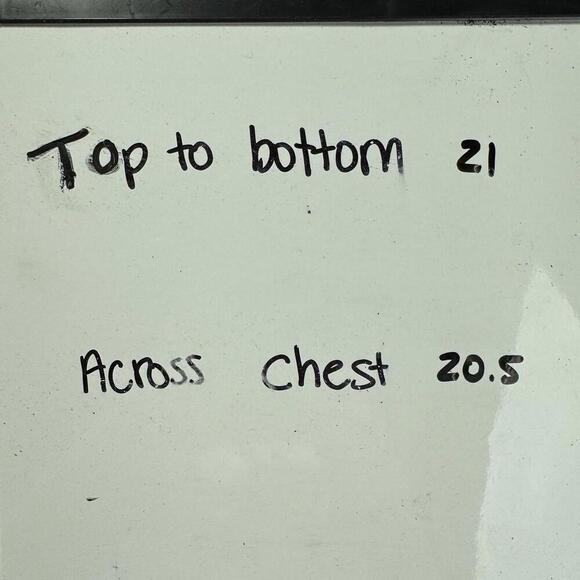 Top to bottom 21
Across Chest 20.5